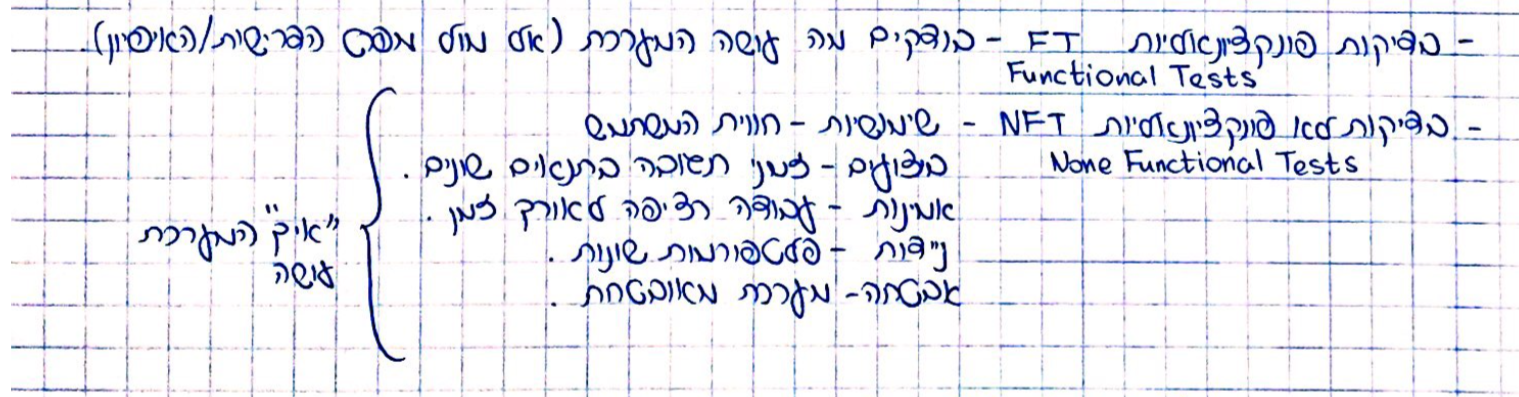 - בדיקות פונקציונאליות FT - בודקים מה עושה המערכת (אל מול מסמך הדרישות/האיפיון).
Functional Tests
- בדיקות לא פונקציונאליות NFT - שימושיות - חווית המשתמש
None Functional Tests
ביצועים - זמני תשובה בתנאים שונים.
אמינות - עבודה רציפה לאורך זמן.
ניידות - פלטפורמות שונות.
אבטחה - מערכת מאובטחת.
"איך" המערכת
עושה